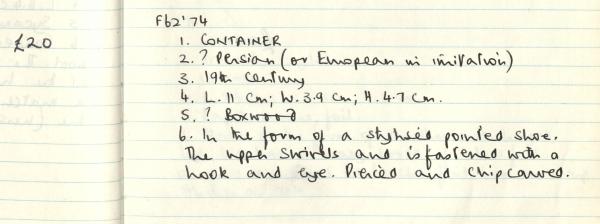 F62'74
£20
1. CONTAINER
2. ? Persian (or European in imitation)
3. 19th Century
4. L. 11 cm; W. 3.9 cm; H. 4.7 cm.
5. ? Boxwood
6. In the form of a stylised pointed shoe.
The upper swivels and is fastened with a
hook and eye. Pierced and chip carved.